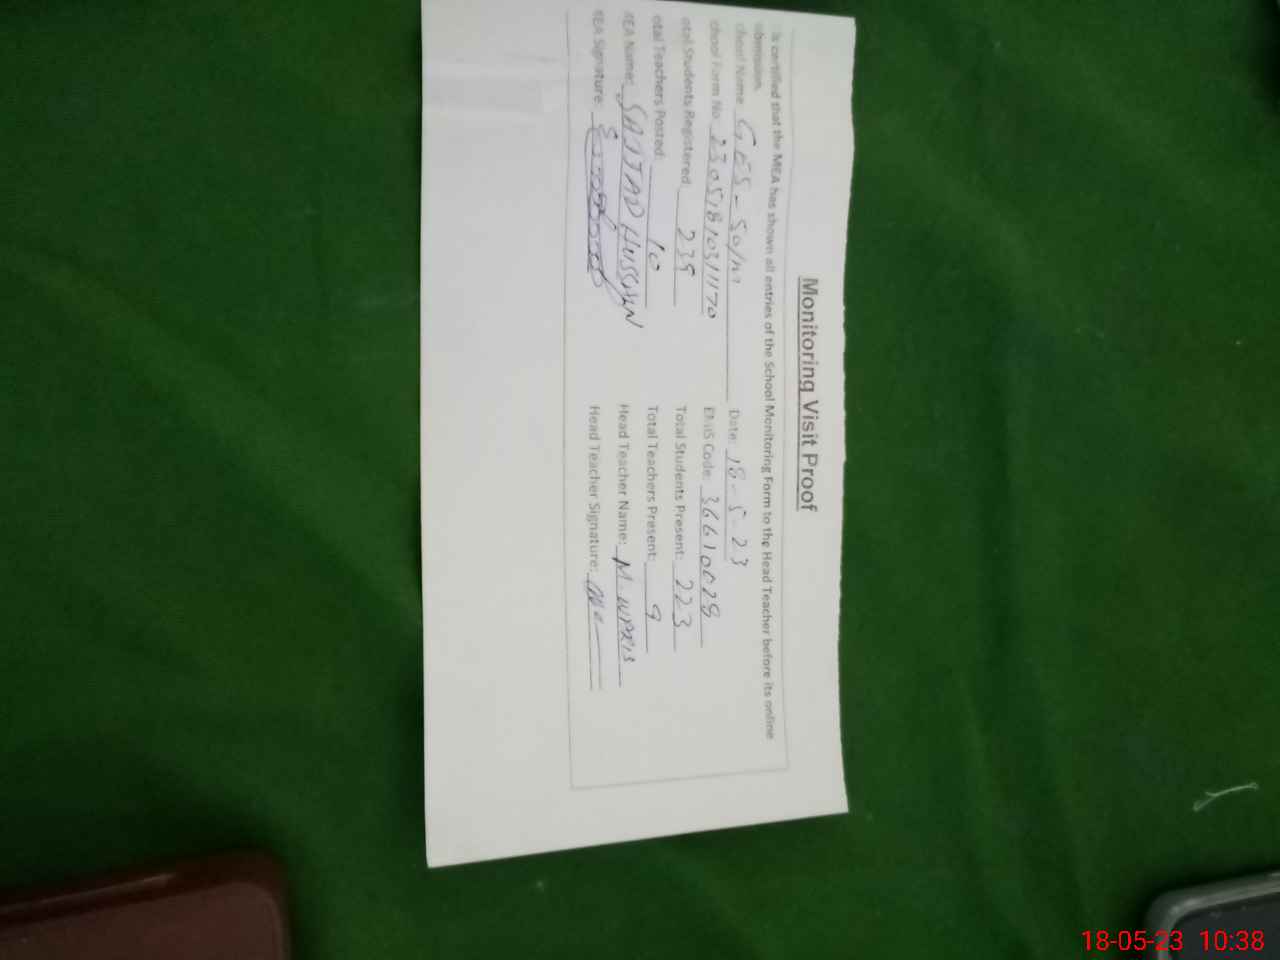 Monitoring Visit Proof
is certified that the MEA has shown all entries of the School Monitoring Form to the Head Teacher before its online
bmission.
chool Name GES - 50/M Date: 18-5-23
chool Form No. 2305181031170 EMIS Code: 36610029
otal Students Registered: 239 Total Students Present: 223
otal Teachers Posted: 10 Total Teachers Present: 9
MEA Name: SAJJAD HUSSAIN Head Teacher Name: M.
MEA Signature: Head Teacher Signature:
18-05-23 10:38